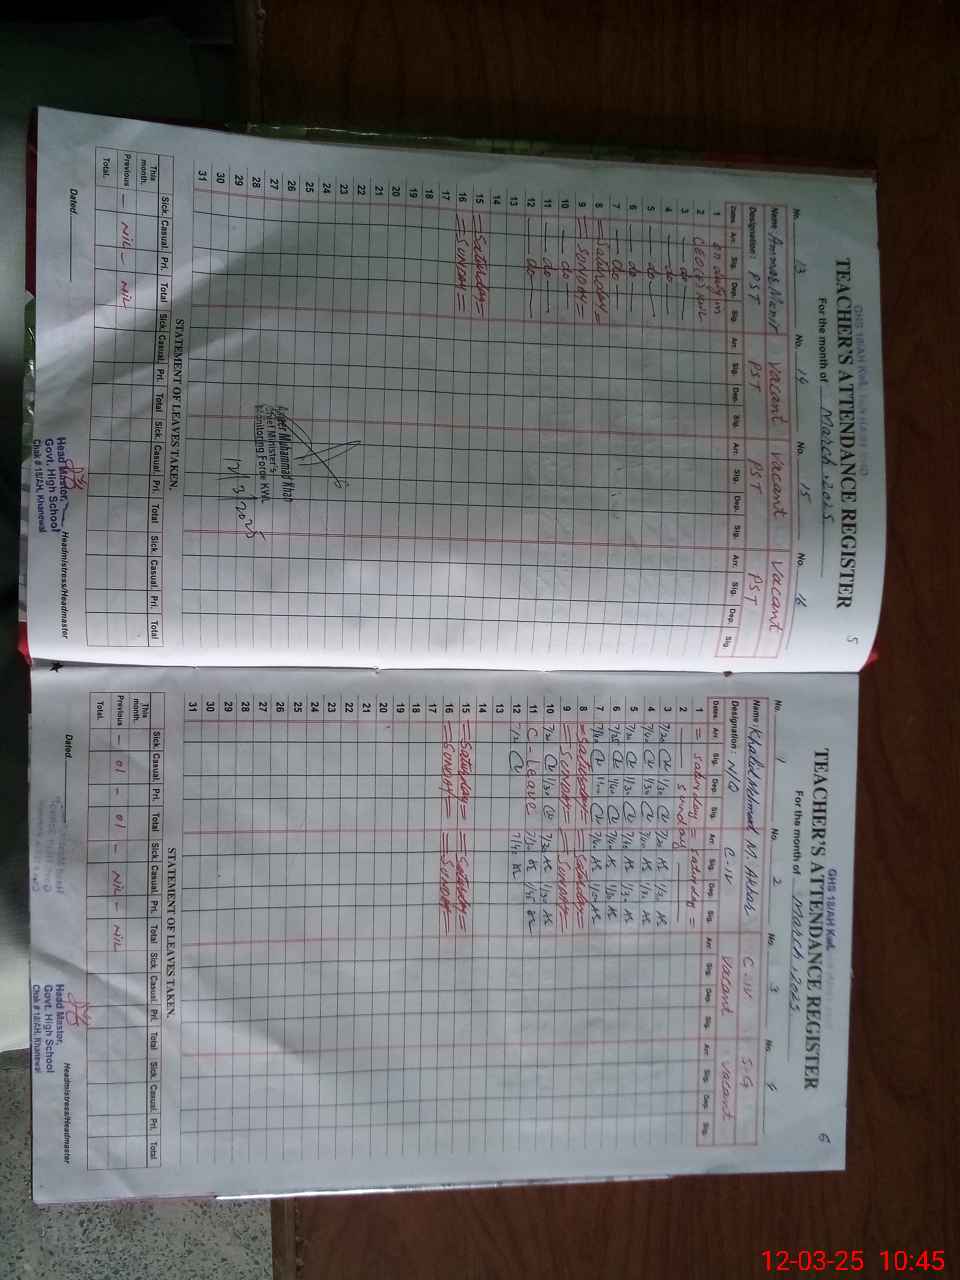 5
GHS 18/AH Kwl.
TEACHER'S ATTENDANCE REGISTER
For the month of March, 2025
No. 13 No. 14 No. 15 No. 16
Name: Ammar Munir Vacant Vacant Vacant
Designation: PST PST PST PST
Dates Arr. Sig. Dep. Sig. Arr. Sig. Dep. Sig. Arr. Sig. Dep. Sig. Arr. Sig. Dep. Sig.
1 on duty in
2
3 — do —
4 — do —
5 — do —
6 — do —
7 — do —
8 = Saturday =
9 = SUNDAY =
10 — do —
11 — do —
12 — do —
13
14
15 = Saturday =
16 = SUNDAY =
17
18
19
20
21
22
23
24
25
26
27
28
29
30
31
Muhammad Khan
Chief Minister's
Monitoring Force KWL
12/3/2025
STATEMENT OF LEAVES TAKEN.
Sick. Casual. Pri. Total Sick. Casual. Pri. Total Sick. Casual. Pri. Total Sick. Casual. Pri. Total
This month.
Previous — NiL — NiL
Total.
Dated.
Head Master,
Govt. High School
Chak # 18/AH, Khanewal
Headmistress/Headmaster
6
GHS 18/AH Kwl.
TEACHER'S ATTENDANCE REGISTER
For the month of March, 2025
No. 1 No. 2 No. 3 No. 4
Name: Khalid Mehmood M. Akhar C-IV S-G
Designation: N/Q C-IV Vacant Vacant
Dates Arr. Sig. Dep. Sig. Arr. Sig. Dep. Sig. Arr. Sig. Dep. Sig. Arr. Sig. Dep. Sig.
1 = Saturday = Saturday =
2 — Sunday —
3 7/20 1/30 7/20 1/30
4 7/40 1/30 7/40 1/30
5 7/20 1/30 7/30 1/30
6 7/25 1/40 7/40 1/30
7 7/40 7/40
8 = Saturday = = Saturday =
9 = SUNDAY = = SUNDAY =
10 7/20 1/30 7/30 1/30
11 C - Leave 7/30 1/45
12 7/40
13
14
15 = Saturday = = Saturday =
16 = SUNDAY = = SUNDAY =
17
18
19
20
21
22
23
24
25
26
27
28
29
30
31
STATEMENT OF LEAVES TAKEN.
Sick. Casual. Pri. Total Sick. Casual. Pri. Total Sick. Casual. Pri. Total Sick. Casual. Pri. Total
This month.
Previous — 01 — 01 — NiL — NiL
Total.
Dated.
Head Master,
Govt. High School
Chak # 18/AH, Khanewal
Headmistress/Headmaster
12-03-25 10:45